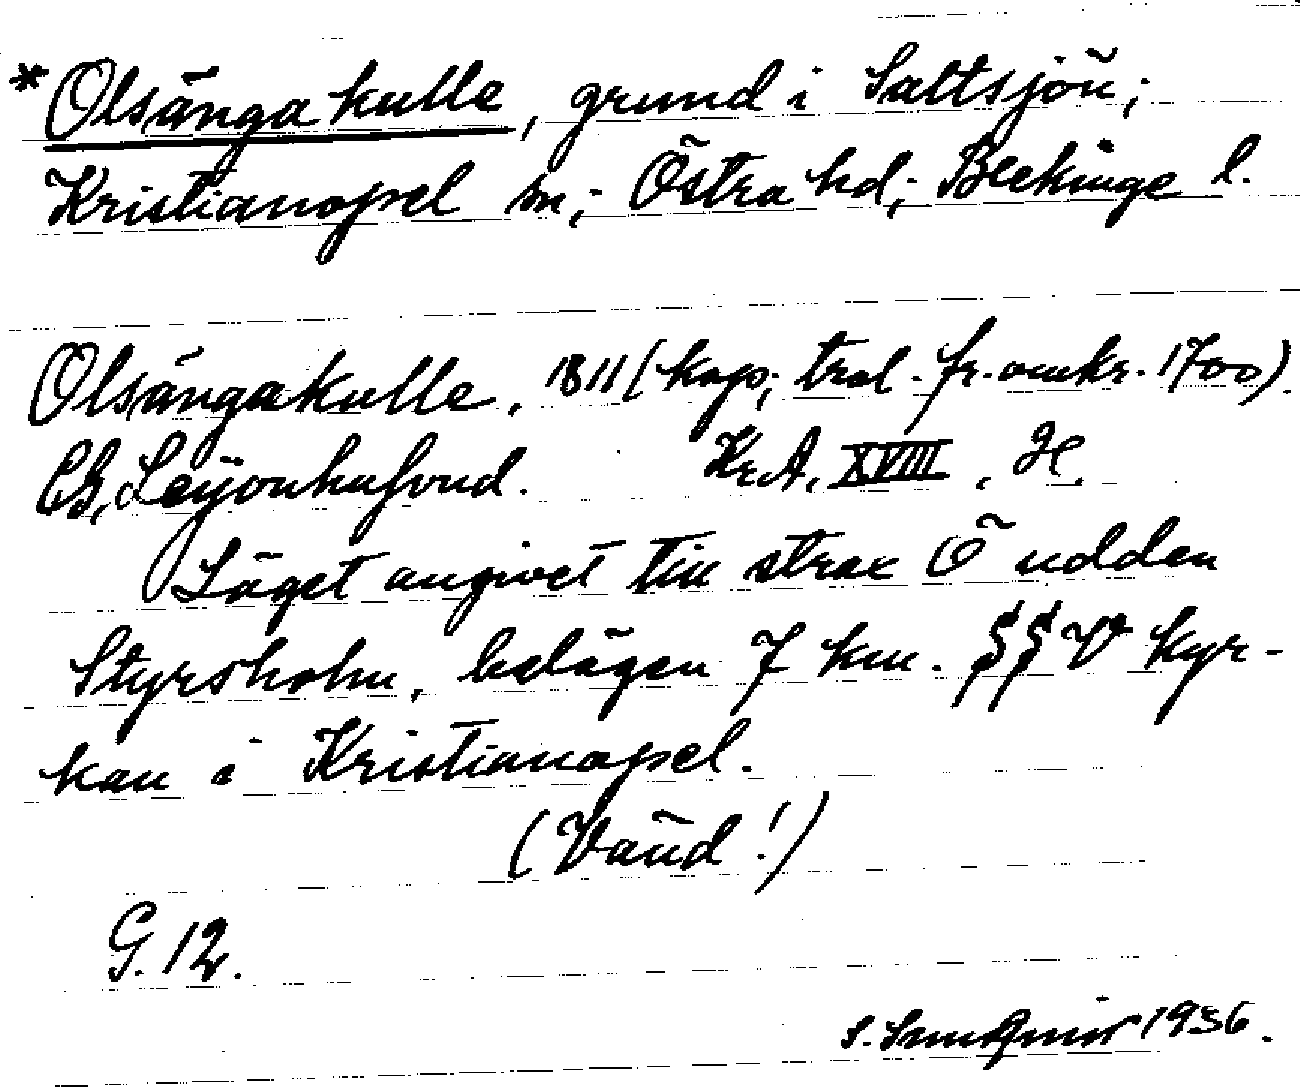 *Olsängakulle, grund i Saltsjön;
Kristianopel sn; Östra hd; Blekinge l.
Olsängakulle, 1811 (kop; trol. fr. omkr. 1700).
Ch. Leijonhufvud. Kr.A. XVIII, H.
Läget angivet till strax Ö udden
Styrsholm, belägen 7 km. SSV kyr-
kan i Kristianopel.
(Vänd!)
G. 12.
S. 1936.